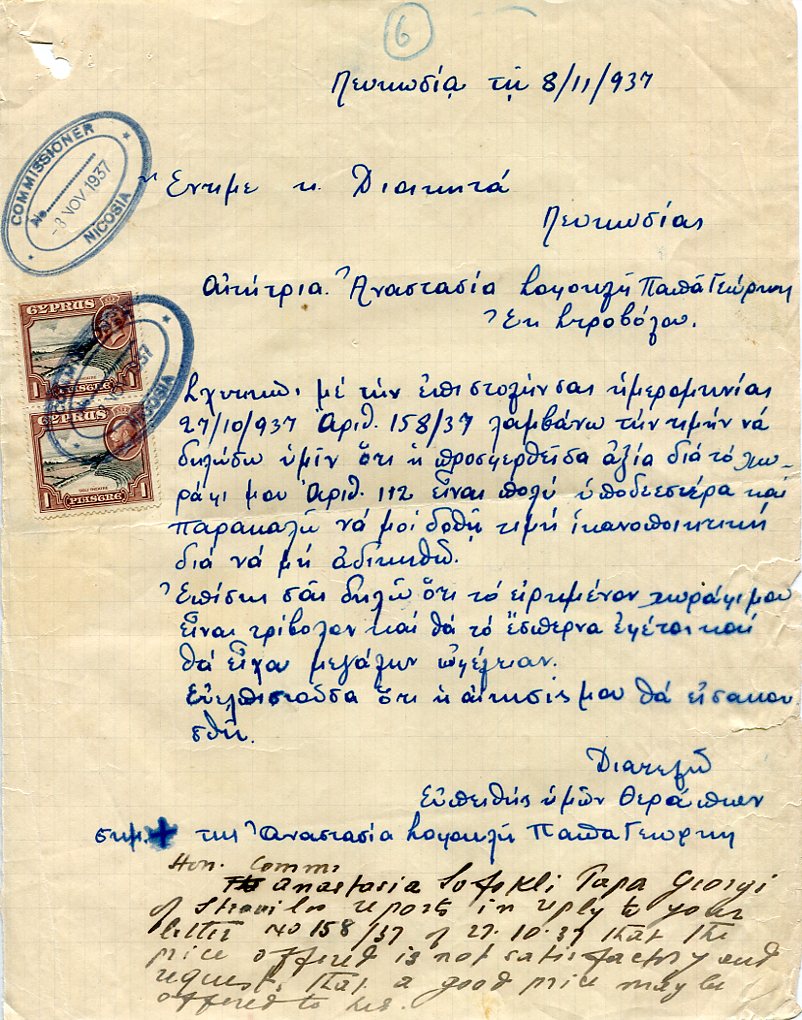 6
Λευκωσίᾳ τῇ 8/11/937
COMMISSIONER
No.
-8 NOV 1937
NICOSIA
Ἔντιμε κ. Διοικητά
Λευκωσίας
Αἰτήτρια. Ἀναστασία Σοφοκλῆ Παπᾶ Γεώργη
Ἐκ Στροβόλου.
CYPRUS
1 PIASTRE 1
CYPRUS
1 PIASTRE 1
NOV 1937
NICOSIA
Σχετικῶς μέ τήν ἐπιστολήν σας ἡμερομηνίας
27/10/937 Ἀριθ. 158/37 λαμβάνω τήν τιμήν νά
δηλώσω ὑμῖν ὅτι ἡ προσφερθεῖσα ἀξία διά τό χω-
ράφι μου Ἀριθ. 112 εἶναι πολύ ὑποδεεστέρα καί
παρακαλῶ νά μοί δοθῇ τιμή ἱκανοποιητική
διά νά μή ἀδικηθῶ.
Ἐπίσης σᾶς δηλῶ ὅτι τό εἰρημένον χωράφι μου
εἶναι τρίβολον καί θά τό ἔσπερνα ἐφέτος καί
θά εἶχον μεγάλην ὠφέλειαν.
Εὐελπιστοῦσα ὅτι ἡ αἴτησίς μου θά εἰσακου
σθῇ.
Διατελῶ
Εὐπειθής ὑμῶν θεράπων
σημ. + της Ἀναστασία Σοφοκλῆ Παπᾶ Γεώργη
Hon. Commr
Anastasia Sofokli Papa Georgi
of Strovilos reports in reply to your
letter No 158/37 of 27.10.37 that the
price offered is not satisfactory and
request, that a good price may be
offered to her.